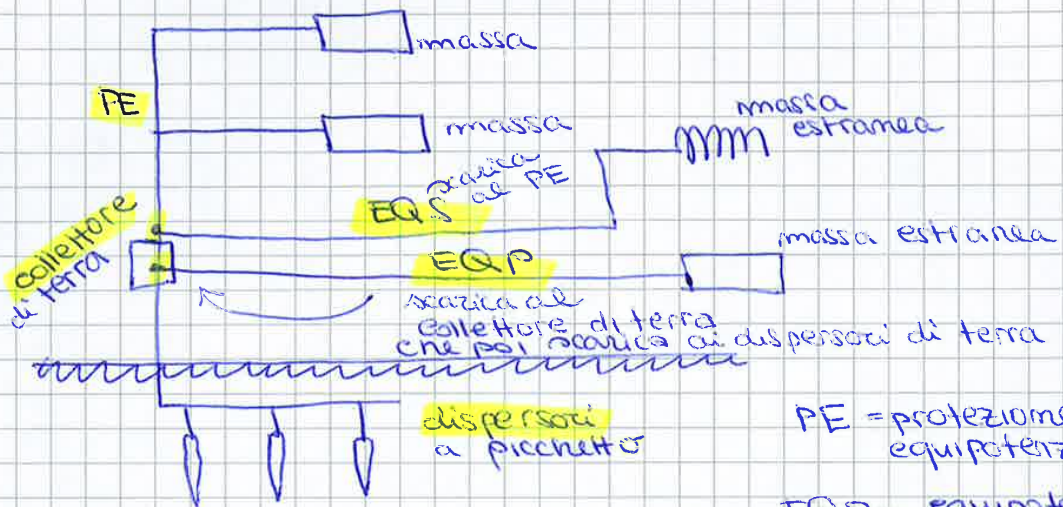 massa
PE
massa
massa
estranea
scarica
al PE
EQS
collettore
di terra
massa estranea
EQP
scarica al
collettore di terra
che poi scarica ai dispersori di terra
dispersori
a picchetto
PE = protezione